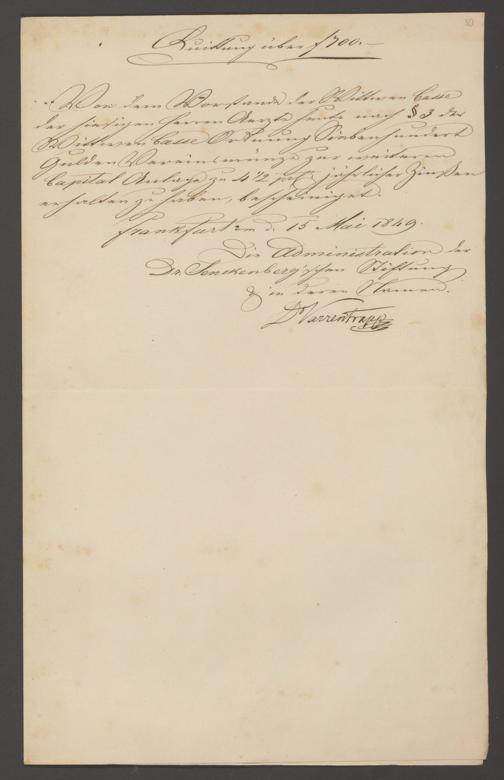 30
Quittung über f700.–
Von dem Vorstande der Wittwen Casse
der hiesigen Herren Aerzte heute nach § 3 der
Wittwen Casse Ordnung Siebenhundert
Gulden Vereinsmünze zur weiteren
Capital Anlage zu 4½ pct. jährlicher Zinßen
erhalten zu haben, bescheiniget.
Frankfurt a/m d. 15 Mai 1849.
Die Administration der
Dr. Senckenberg'schen Stiftung
& in deren Namen.
Dr Varrentrapp